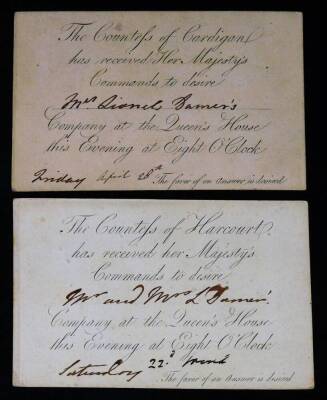 The Countess of Cardigan
has received Her Majesty's
Commands to desire
Mrs Lionel Damer's
Company at the Queen's House
this Evening at Eight O'Clock
Friday April 28th The favor of an Answer is desired
The Countess of Harcourt
has received her Majesty's
Commands to desire
Mr and Mrs L Damer's
Company at the Queen's House
this Evening at Eight O'Clock
Saturday 22d
The favor of an Answer is desired